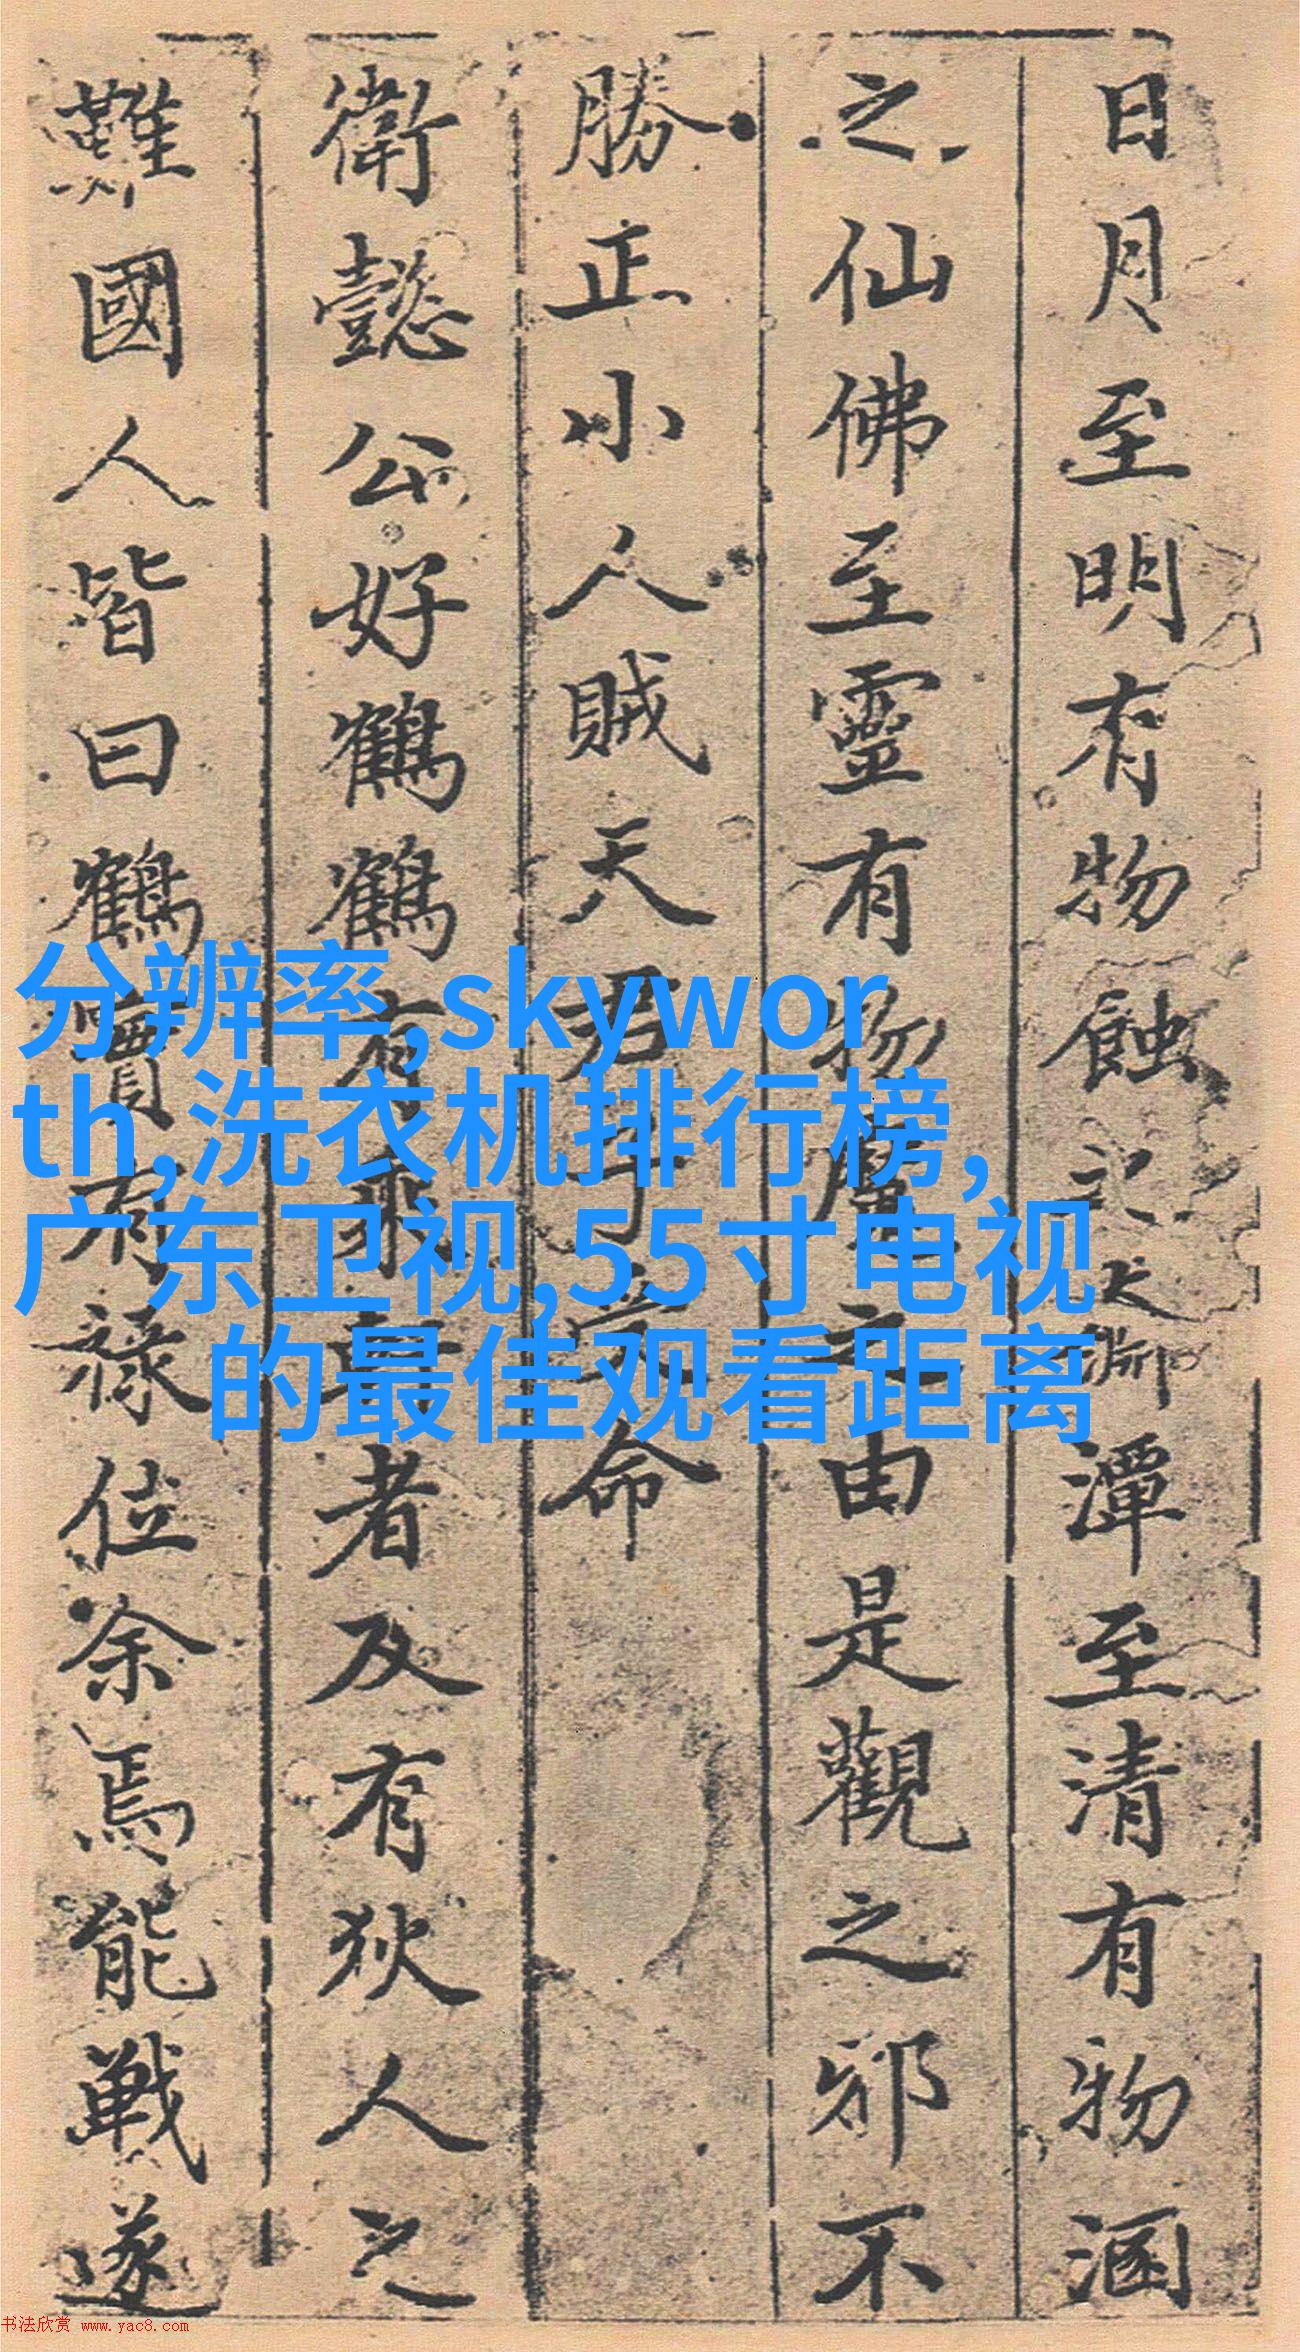 日月至明有物蝕之大淵潭至清有物涵
之仙佛至靈有物魔之由是觀之邪不
勝正小人賊天君子受命
衛懿公好鶴鶴有乘軒者及有狄人之
難國人皆曰鶴實有祿位余焉能戰遂
分辨率,skywor
th,洗衣机排行榜,
广东卫视,55寸电视
的最佳观看距离
书法欣赏 www.yac8.com